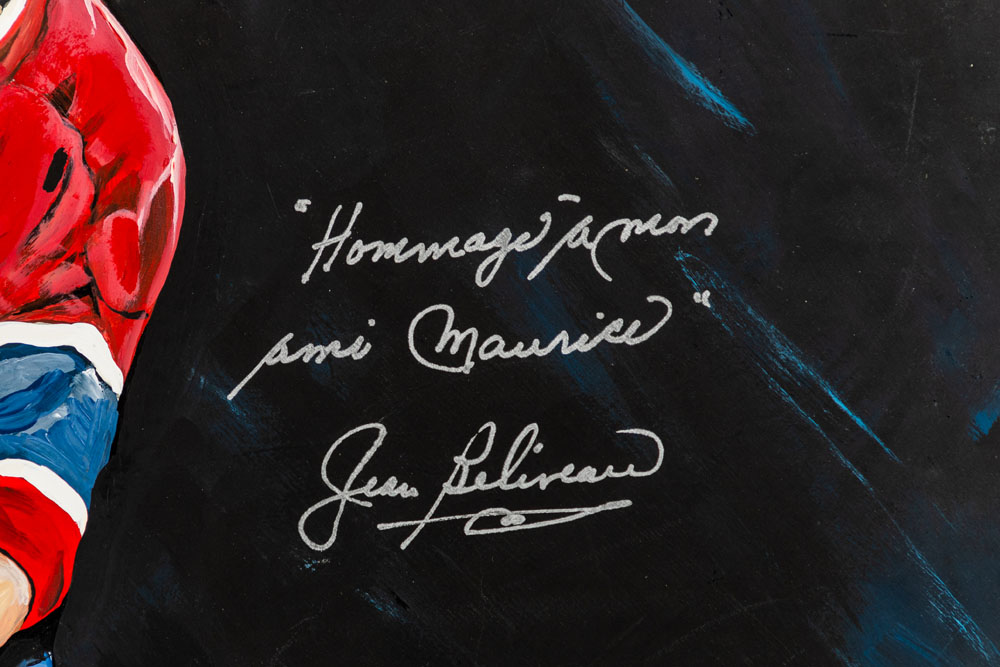 "Hommage à mon
ami Maurice"
Jean Beliveau